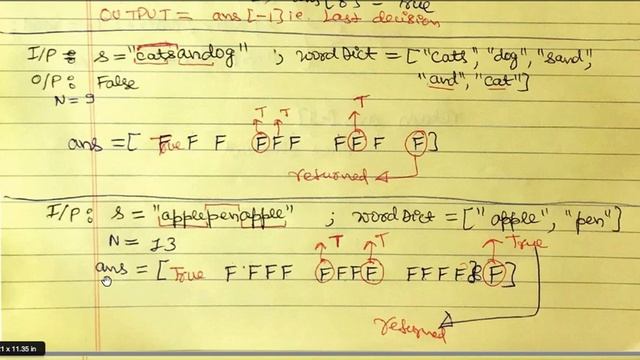 OUTPUT = ans[-1] ie. Last decision
I/P : s = "catsandog" ; wordDict = ["cats", "dog", "sand",
"and", "cat"]
O/P : False
N = 9
T T T
ans = [ True F F F F F F F F F ]
returned
I/P : s = "applepenapple" ; wordDict = ["apple", "pen"]
N = 13
T T True
ans = [ True F F F F F F F F F F F F F ]
returned
1 x 11.35 in